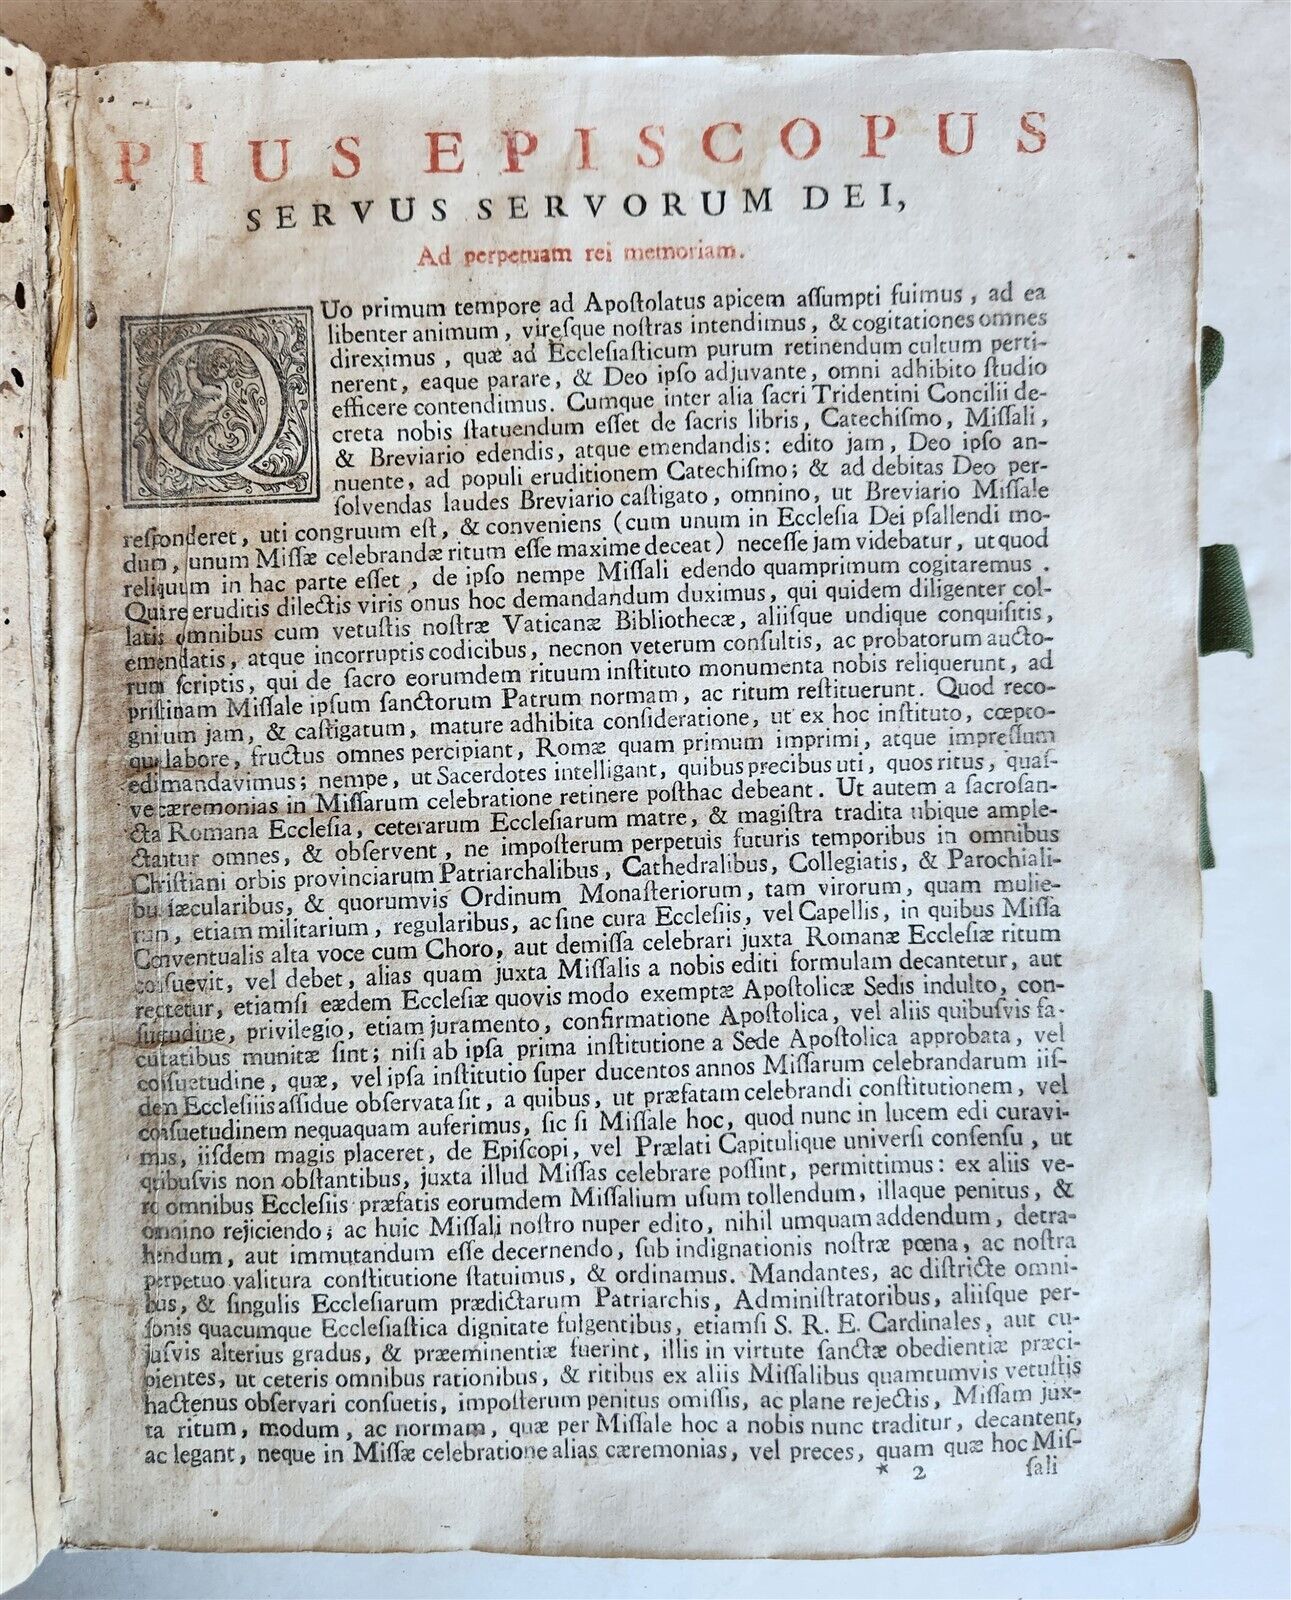 PIUS EPISCOPUS
SERVUS SERVORUM DEI,
Ad perpetuam rei memoriam.
QUo primum tempore ad Apoſtolatus apicem aſſumpti fuimus, ad ea
libenter animum, vireſque noſtras intendimus, & cogitationes omnes
direximus, quæ ad Eccleſiaſticum purum retinendum cultum perti-
nerent, eaque parare, & Deo ipſo adjuvante, omni adhibito ſtudio
efficere contendimus. Cumque inter alia ſacri Tridentini Concilii de-
creta nobis ſtatuendum eſſet de ſacris libris, Catechiſmo, Miſſali,
& Breviario edendis, atque emendandis: edito jam, Deo ipſo an-
nuente, ad populi eruditionem Catechiſmo; & ad debitas Deo per-
ſolvendas laudes Breviario caſtigato, omnino, ut Breviario Miſſale
reſponderet, uti congruum eſt, & conveniens (cum unum in Eccleſia Dei pſallendi mo-
dum, unum Miſſæ celebrandæ ritum eſſe maxime deceat) neceſſe jam videbatur, ut quod
reliquum in hac parte eſſet, de ipſo nempe Miſſali edendo quamprimum cogitaremus.
Quire eruditis dilectis viris onus hoc demandandum duximus, qui quidem diligenter col-
latis omnibus cum vetuſtis noſtræ Vaticanæ Bibliothecæ, aliiſque undique conquiſitis,
emendatis, atque incorruptis codicibus, necnon veterum conſultis, ac probatorum aucto-
rum ſcriptis, qui de ſacro eorumdem rituum inſtituto monumenta nobis reliquerunt, ad
priſtinam Miſſale ipſum ſanctorum Patrum normam, ac ritum reſtituerunt. Quod reco-
gnitum jam, & caſtigatum, mature adhibita conſideratione, ut ex hoc inſtituto, cœpto-
que labore, fructus omnes percipiant, Romæ quam primum imprimi, atque impreſſum
edi mandavimus; nempe, ut Sacerdotes intelligant, quibus precibus uti, quos ritus, quaſ-
ve cæremonias in Miſſarum celebratione retinere poſthac debeant. Ut autem a ſacroſan-
cta Romana Eccleſia, ceterarum Eccleſiarum matre, & magiſtra tradita ubique ample-
ctantur omnes, & obſervent, ne impoſterum perpetuis futuris temporibus in omnibus
Chriſtiani orbis provinciarum Patriarchalibus, Cathedralibus, Collegiatis, & Parochiali-
bus ſæcularibus, & quorumvis Ordinum Monaſteriorum, tam virorum, quam mulie-
rum, etiam militarium, regularibus, ac ſine cura Eccleſiis, vel Capellis, in quibus Miſſa
Conventualis alta voce cum Choro, aut demiſſa celebrari juxta Romanæ Eccleſiæ ritum
conſuevit, vel debet, alias quam juxta Miſſalis a nobis editi formulam decantetur, aut
recitetur, etiamſi eædem Eccleſiæ quovis modo exemptæ Apoſtolicæ Sedis indulto, con-
ſuetudine, privilegio, etiam juramento, confirmatione Apoſtolica, vel aliis quibuſvis fa-
cultatibus munitæ ſint; niſi ab ipſa prima inſtitutione a Sede Apoſtolica approbata, vel
conſuetudine, quæ, vel ipſa inſtitutio ſuper ducentos annos Miſſarum celebrandarum iiſ-
dem Eccleſiiis aſſidue obſervata ſit, a quibus, ut præfatam celebrandi conſtitutionem, vel
conſuetudinem nequaquam auferimus, ſic ſi Miſſale hoc, quod nunc in lucem edi curavi-
mus, iiſdem magis placeret, de Epiſcopi, vel Prælati Capitulique univerſi conſenſu, ut
quibuſvis non obſtantibus, juxta illud Miſſas celebrare poſſint, permittimus: ex aliis ve-
ro omnibus Eccleſiis præfatis eorumdem Miſſalium uſum tollendum, illaque penitus, &
omnino rejiciendo; ac huic Miſſali noſtro nuper edito, nihil umquam addendum, detra-
hendum, aut immutandum eſſe decernendo, ſub indignationis noſtræ pœna, ac noſtra
perpetuo valitura conſtitutione ſtatuimus, & ordinamus. Mandantes, ac diſtricte omni-
bus, & ſingulis Eccleſiarum prædictarum Patriarchis, Adminiſtratoribus, aliiſque per-
ſonis quacumque Eccleſiaſtica dignitate fulgentibus, etiamſi S. R. E. Cardinales, aut cu-
juſvis alterius gradus, & præeminentiæ fuerint, illis in virtute ſanctæ obedientiæ præci-
pientes, ut ceteris omnibus rationibus, & ritibus ex aliis Miſſalibus quamtumvis vetuſtis
hactenus obſervari conſuetis, impoſterum penitus omiſſis, ac plane rejectis, Miſſam jux-
ta ritum, modum, ac normam, quæ per Miſſale hoc a nobis nunc traditur, decantent,
ac legant, neque in Miſſæ celebratione alias cæremonias, vel preces, quam quæ hoc Miſ-
* 2 ſali